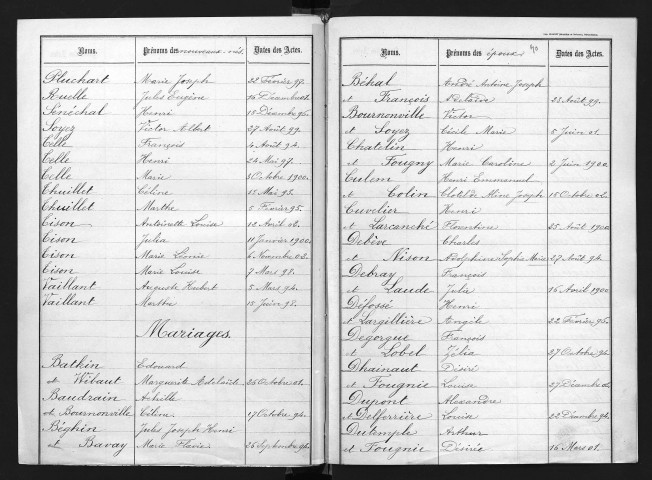 Noms. Prénoms des nouveaux-nés. Dates des Actes.
Pluchart Marie Joseph 22 Février 97.
Ruelle Jules Eugène 16 Décembre 01.
Sénéchal Henri 18 Décembre 96.
Soyez Victor Albert 27 Août 99.
Celle François 4 Août 94.
Celle Henri 24 Mai 97.
Celle Marie 8 Octobre 1900.
Chuillet Céline 15 Mai 93.
Chuillet Marthe 5 Février 95.
Cison Antoinette Louise 12 Avril 02.
Cison Julia 11 Janvier 1900.
Cison Marie Léonie 6 Novembre 02.
Cison Marie Louise 7 Mars 98.
Vaillant Auguste Hubert 5 Mars 94.
Vaillant Marthe 15 Juin 98.
Mariages.
Batkin Edouard
et Wibaut Marguerite Adélaïde 26 Octobre 01.
Baudrain Achille
et Bournonville Céline 17 Octobre 94.
Béghin Jules Joseph Henri
et Bavay Marie Flavie 26 Septembre 94.
Noms. Prénoms des époux Dates des Actes.
40
Béhal André Antoine Joseph
et François 23 Août 99.
Bournonville Victor
et Soyez Cécile Marie 5 Juin 01.
Chatelin Henri
et Fougny Marie Caroline 2 Juin 1900
Culem Henri Emmanuel
et Colin Clotilde Mine Joseph 18 Octobre 02.
Cuvelier Henri
et Larcanché Florentine 25 Août 1900
Debève Charles
et Nison Adolphine Sophie Marie 27 Août 94.
Debray François
et Laude Julia 16 Avril 1900
Défossé Henri
et Largillière Angèle 22 Février 96.
Degorgue François
et Lobel Zélia 27 Octobre 94.
Dhainaut Désiré
et Fougnie Louise 27 Décembre 02.
Dupont Alexandre
et Delferrière Louise 22 Décembre 94.
Dutemple Arthur
et Fougnie Désirée 16 Mars 01.